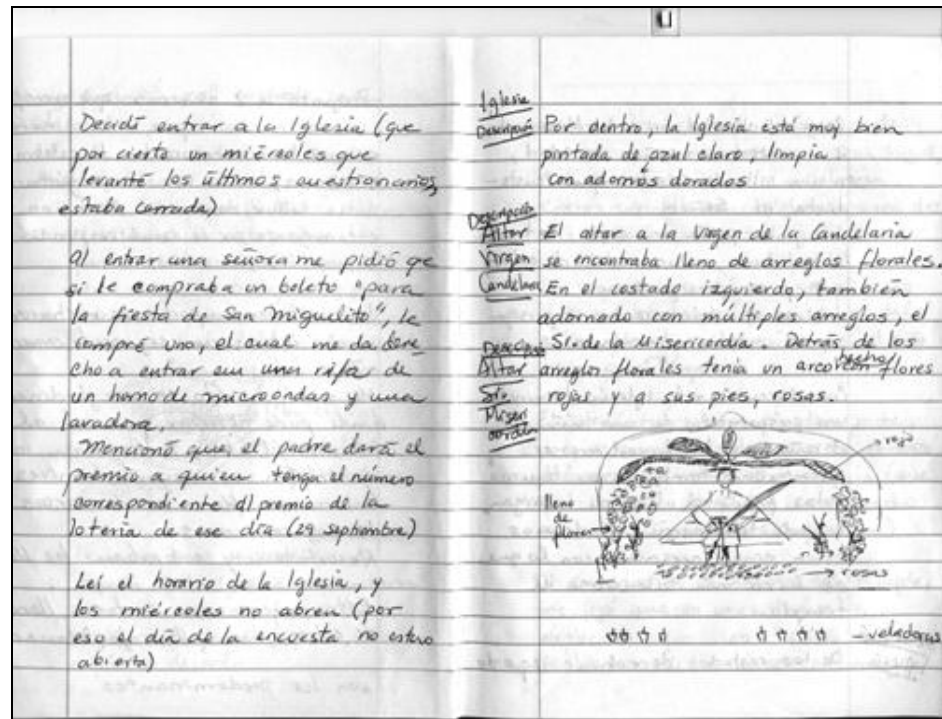 Decidí entrar a la Iglesia (que
por cierto un miércoles que
levanté los últimos cuestionarios,
estaba cerrada)
Al entrar una señora me pidió qe
si le compraba un boleto "para
la fiesta de San Miguelito", le
compré uno, el cual me da dere
cho a entrar en una rifa de
un horno de microondas y una
lavadora.
Mencionó que, el padre dará el
premio a quien tenga el número
correspondiente al premio de la
lotería de ese día (29 septiembre)
Leí el horario de la Iglesia, y
los miércoles no abren (por
eso el día de la encuesta no estuvo
abierta)
Iglesia
Descripción
Por dentro, la Iglesia está muy bien
pintada de azul claro, limpia
con adornos dorados
Descripción
Altar
Virgen
Candelaria
El altar a la Virgen de la Candelaria
se encontraba lleno de arreglos florales.
En el costado izquierdo, también
adornado con múltiples arreglos, el
Sr. de la Misericordia. Detrás de los
arreglos florales tenía un arco hecho con flores
rojas y a sus pies, rosas.
Descripción
Altar
Sr.
Miseri
cordia
rojo
lleno
de
flores
rosas
veladoras